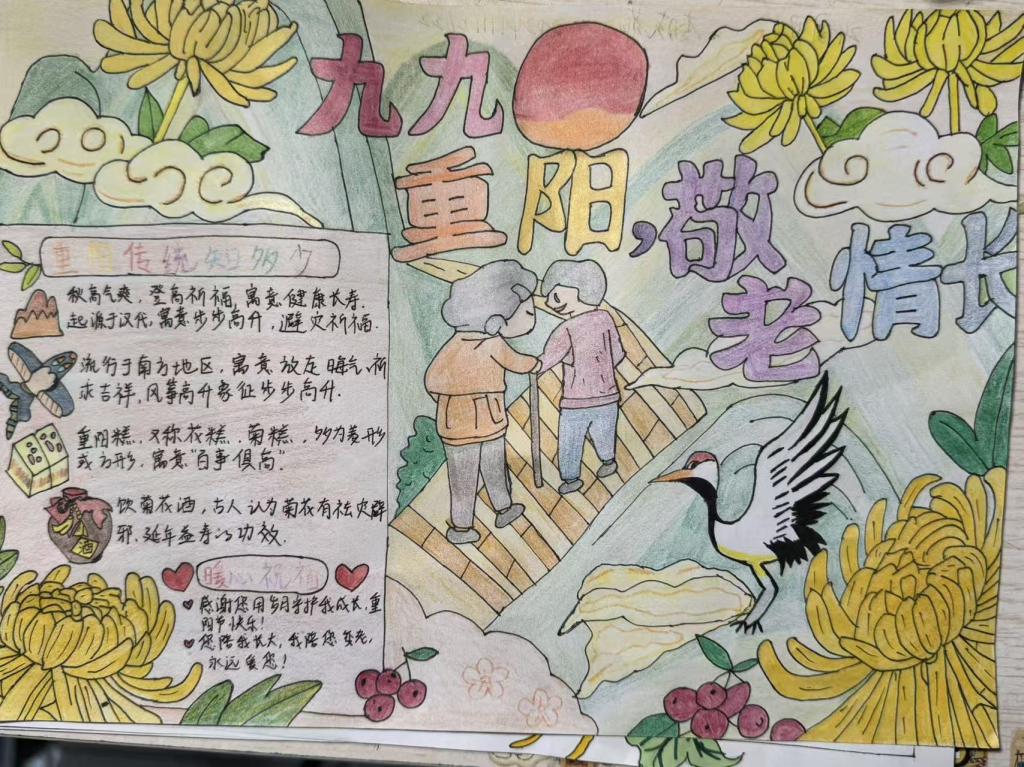 九九
重阳,敬老情长
重阳传统知多少
秋高气爽,登高祈福,寓意健康长寿.
起源于汉代,寓意步步高升,避灾祈福.
流行于南方地区,寓意放走晦气,祈
求吉祥,风筝高升象征步步高升.
重阳糕,又称花糕,菊糕,多为菱形
或方形,寓意"百事俱高".
饮菊花酒,古人认为菊花有祛灾辟
邪,延年益寿的功效.
酒
暖心祝福
感谢您用岁月守护我成长,重
阳节快乐!
您陪我长大,我陪您变老,
永远爱您!